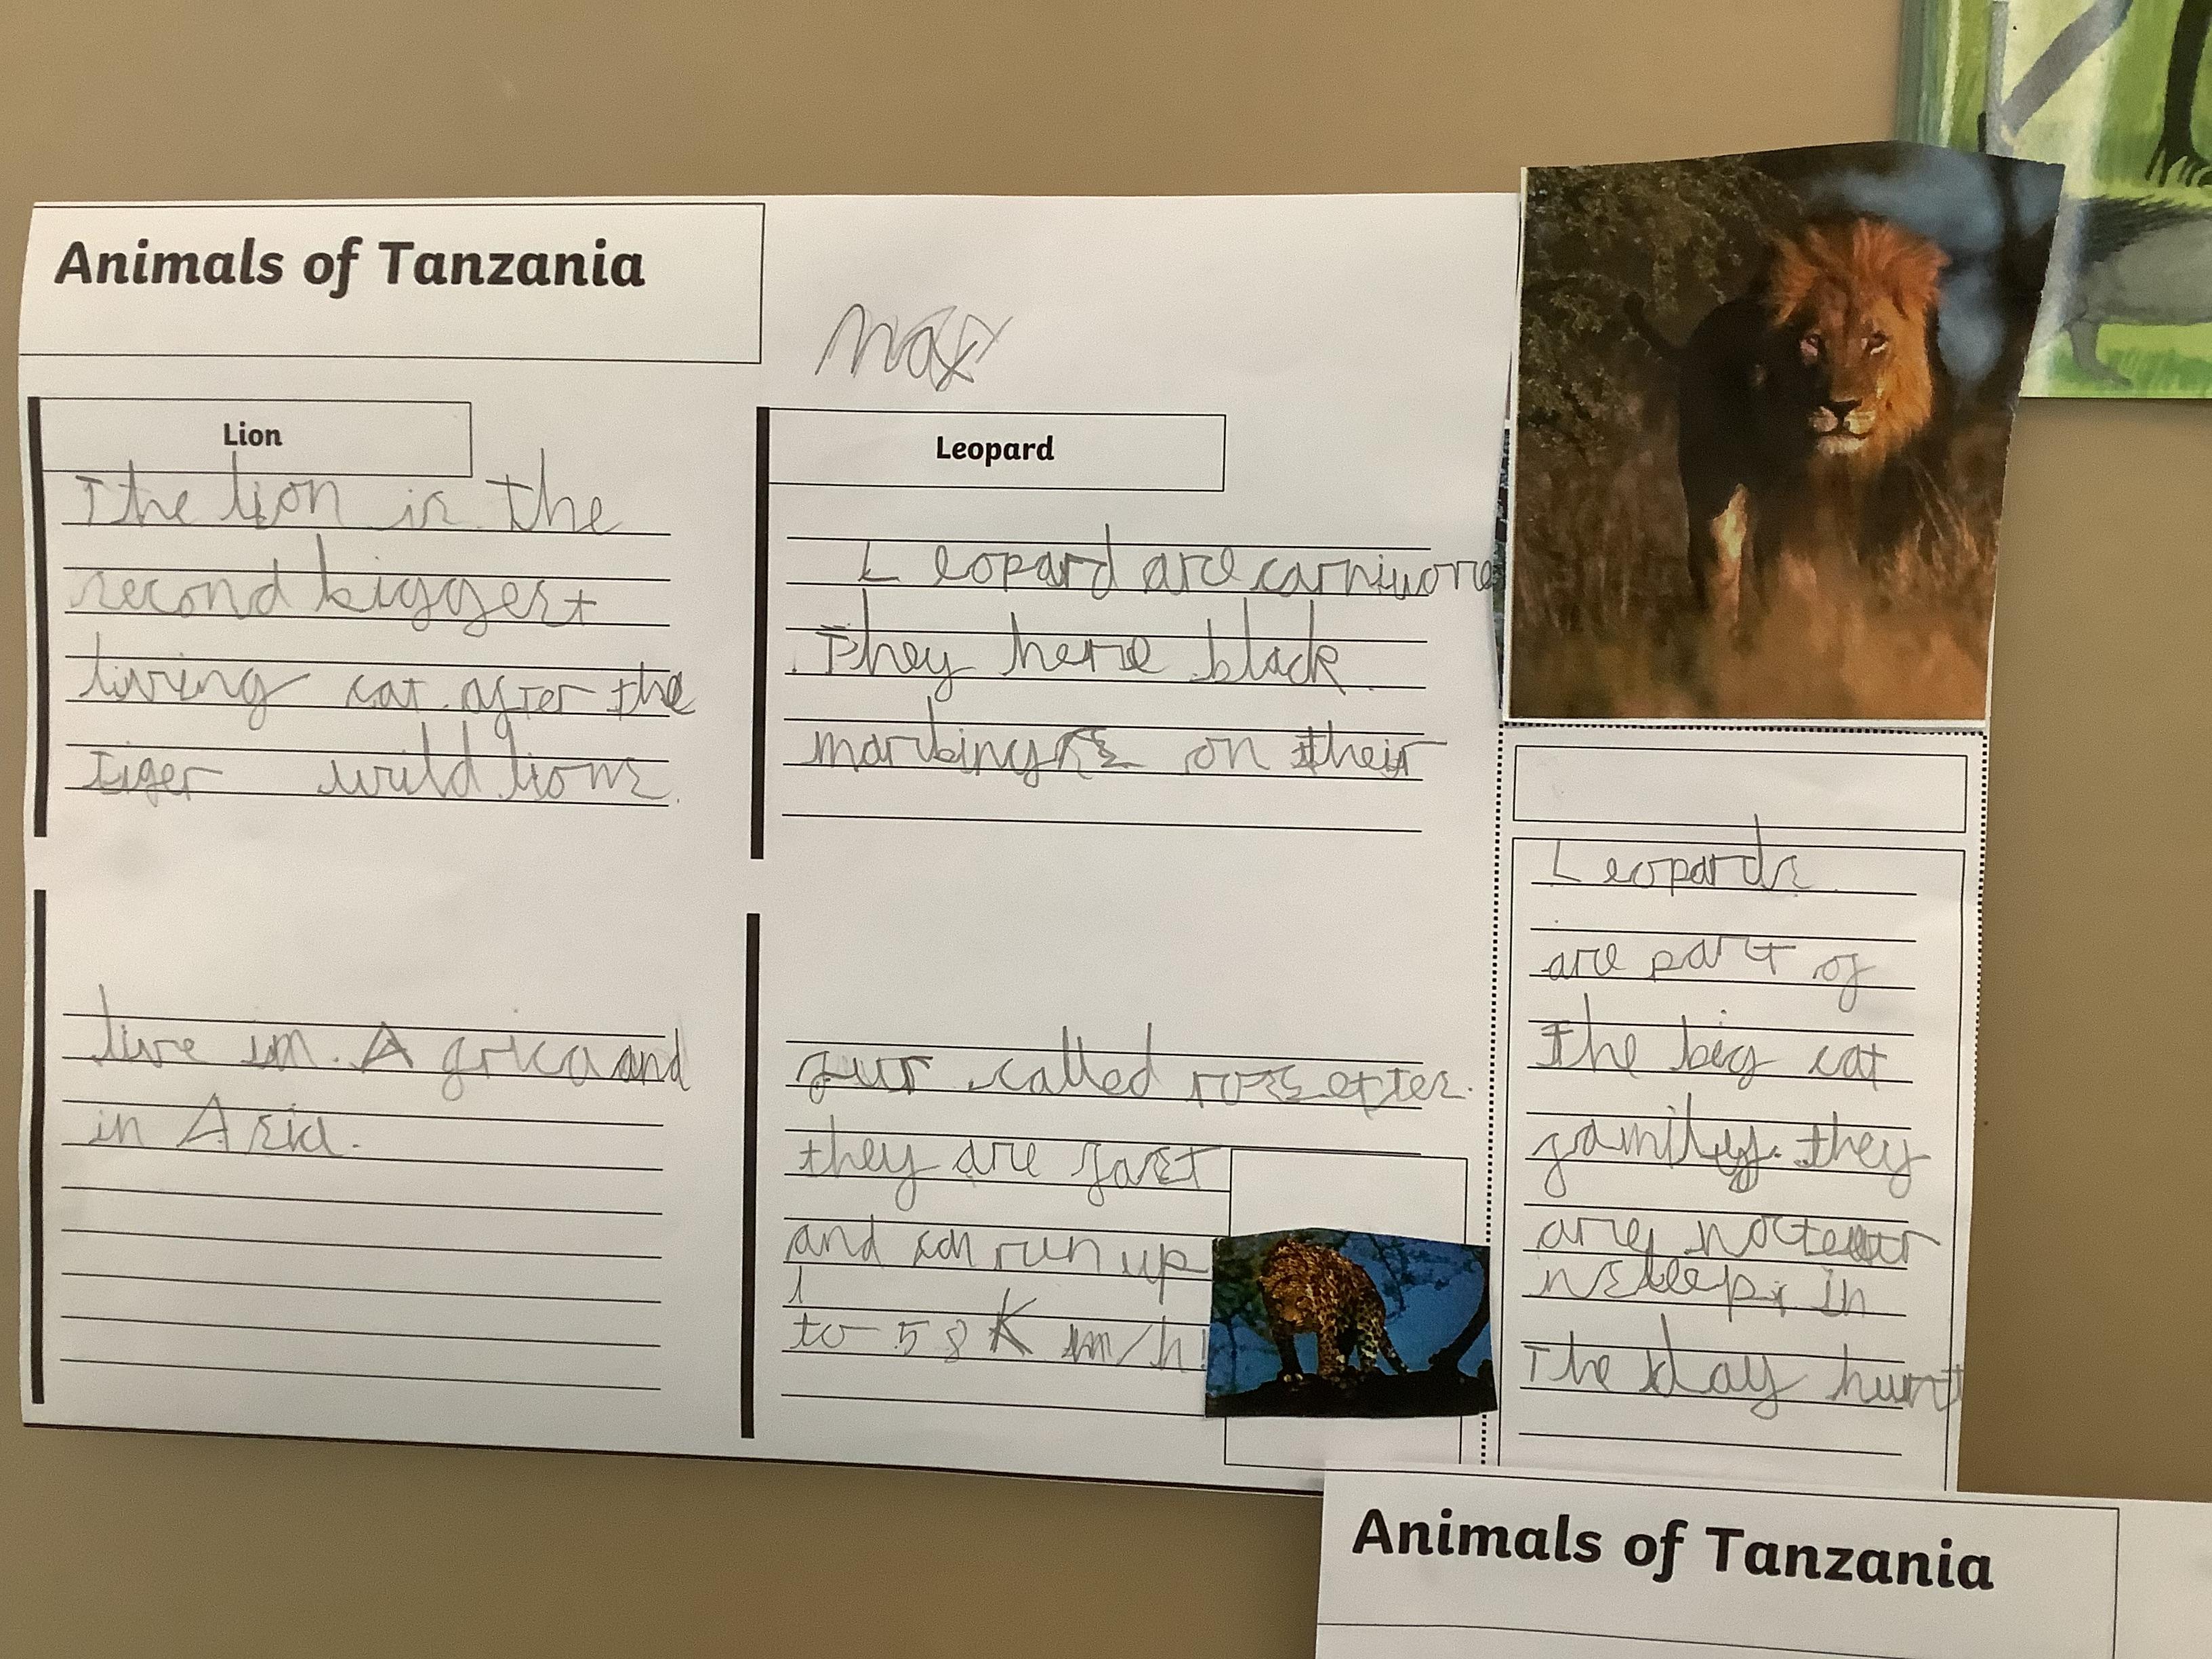 Animals of Tanzania
Max
Lion
The lion is the
second biggest
living cat after the
tiger wild lions
live in Africa and
in Asia.
Leopard
Leopard are carnivore
They have black
markings on their
fur called rossettes.
they are fast
and can run up
to 58 Km/h!
Leopards
are part of
the big cat
family. they
are
in
The day hunt
Animals of Tanzania